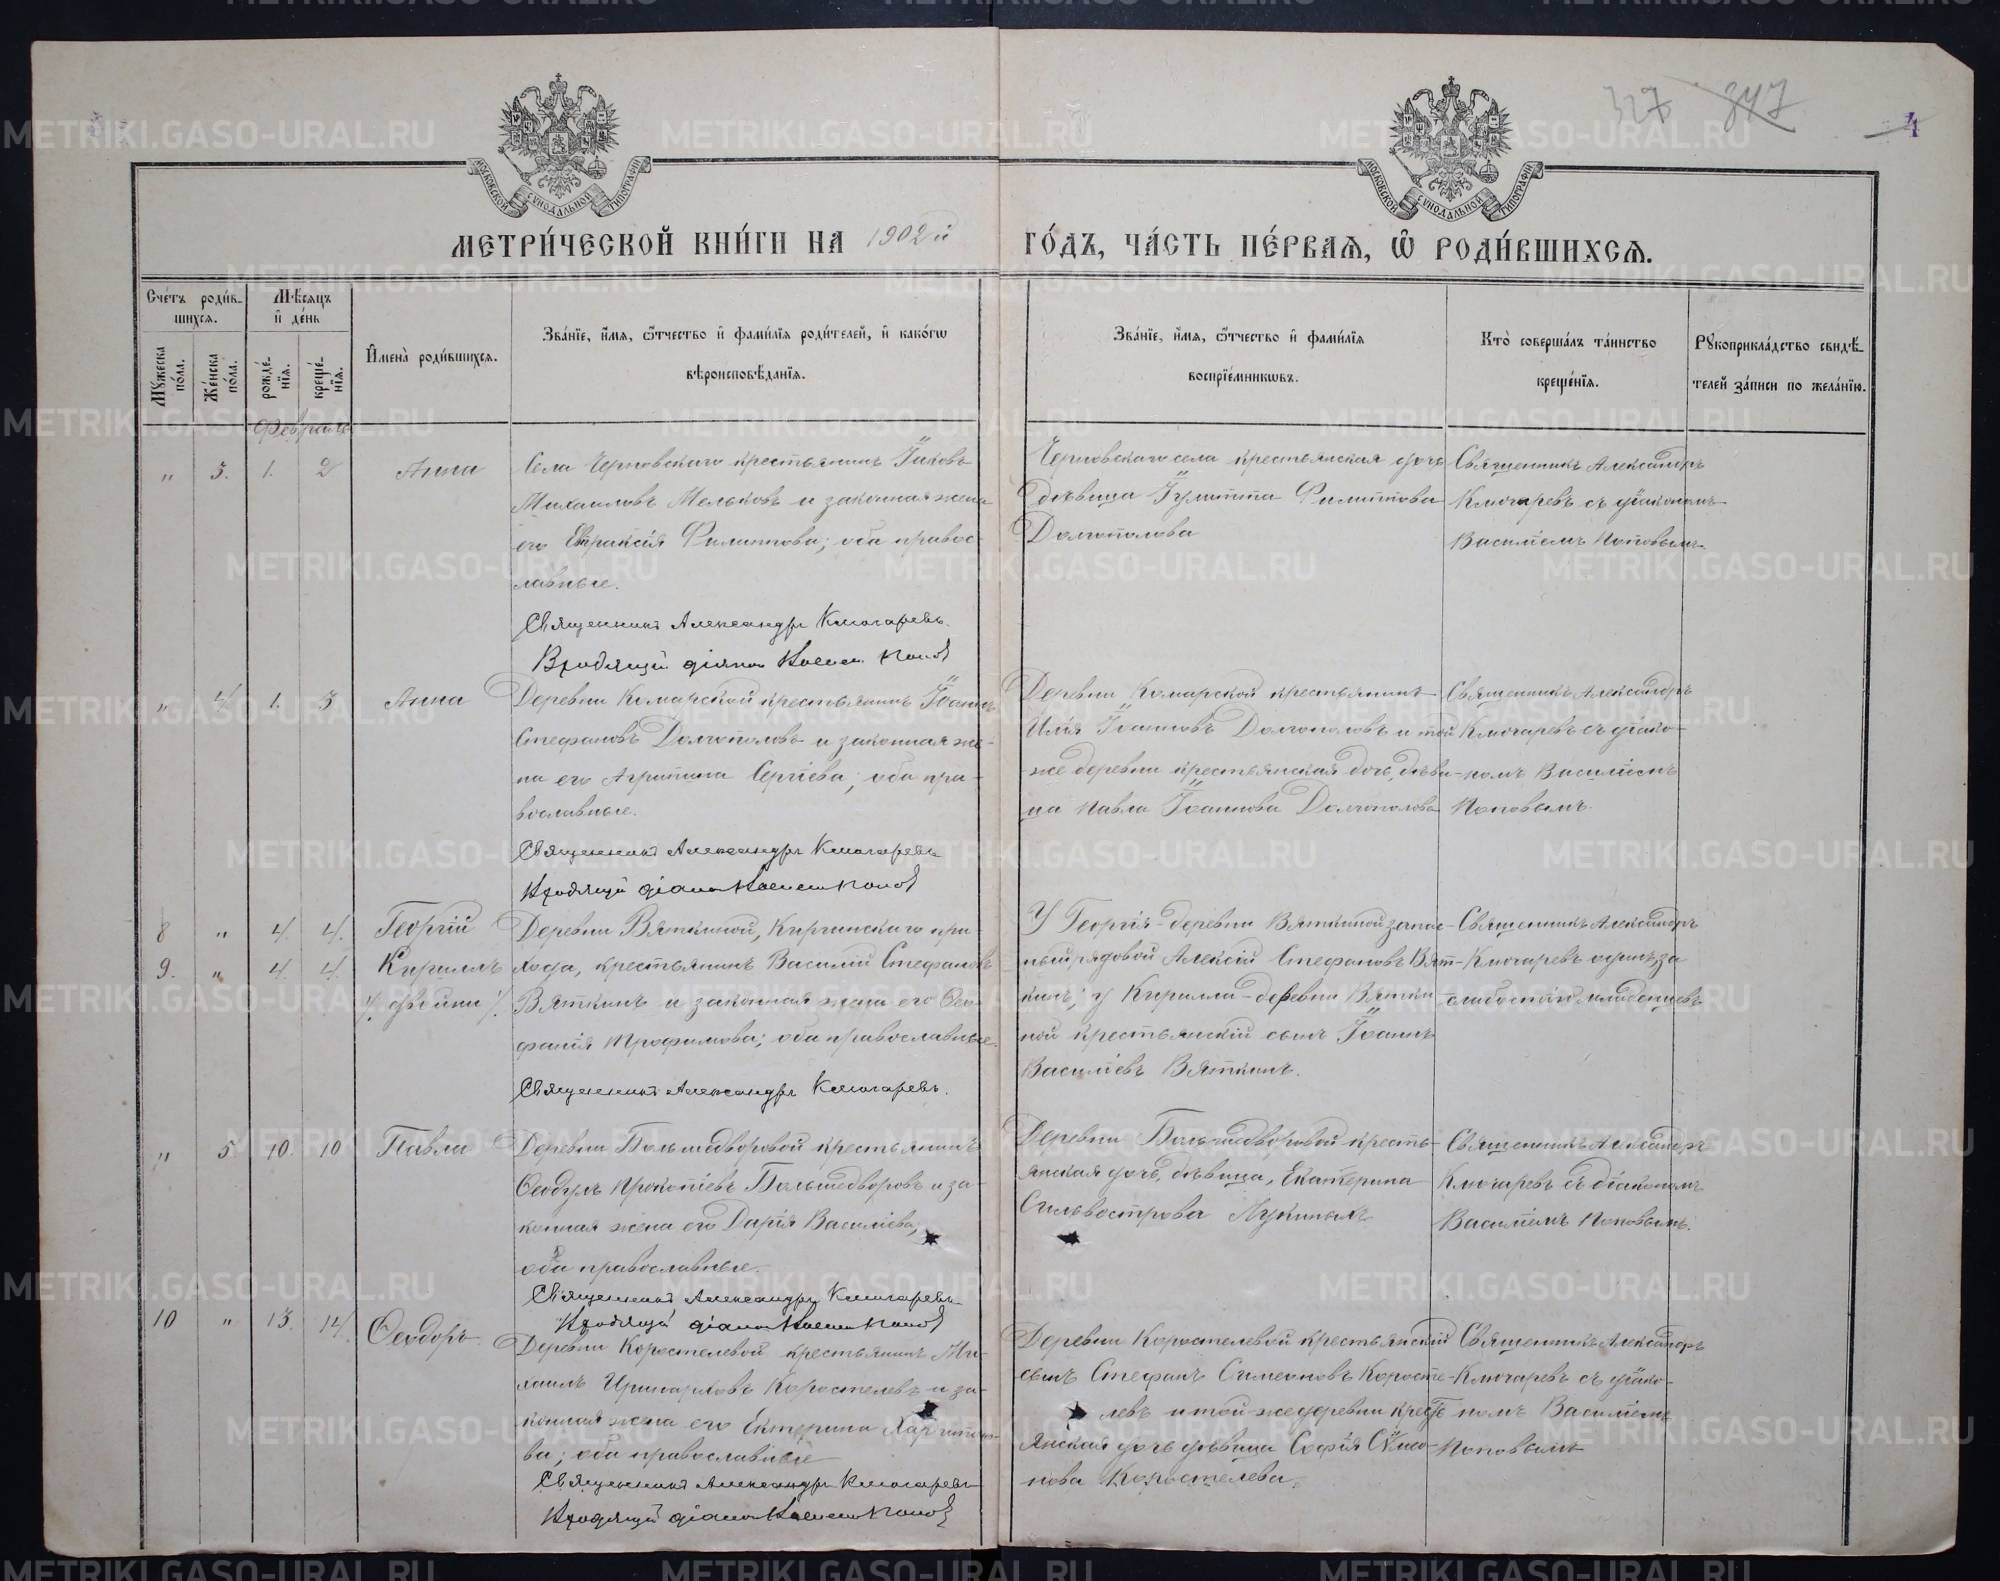 327 347 4
МОСКОВСКОЙ СѴНОДАЛЬНОЙ ТИПОГРАФІИ
МОСКОВСКОЙ СѴНОДАЛЬНОЙ ТИПОГРАФІИ
МЕТРИ́ЧЕСКОЙ КНИ́ГИ НА 1902й ГО́ДЪ, ЧА́СТЬ ПЕ́РВАѦ, Ѡ҆ РОДИ́ВШИХСѦ.
Сче́тъ роди́в-
шихсѧ.
Мꙋ́жеска по́ла.
Же́нска по́ла.
Мѣ́сѧцъ
и҆ де́нь
рожде́-
нїѧ.
креще́-
нїѧ.
И҆мена̀ роди́вшихсѧ.
Зва́нїе, и҆́мѧ, ѻ҆́тчество и҆ фами́лїѧ роди́телей, и҆ како́гѡ
вѣроисповѣ́данїѧ.
Зва́нїе, и҆́мѧ, ѻ҆́тчество и҆ фами́лїѧ
воспрїе́мникѡвъ.
Кто̀ соверша́лъ та́инство
креще́нїѧ.
Рꙋкоприкла́дство свидѣ́-
телей за́писи по жела́нїю.
Февраль
" 3. 1. 2 Анна
Села Черновскаго крестьянинъ Іаковъ
Михаиловъ Мельковъ и законная жена
его Евпраксія Филиппова; оба правос-
лавные.
Священникъ Александръ Ключаревъ.
Черновскаго села крестьянская дочь
дѣвица Іулитта Филиппова
Долгополова
Священникъ Александръ
Ключаревъ съ діакономъ
Василіемъ Поповымъ
" 4. 1. 3 Анна
Деревни Комарской крестьянинъ Іоаннъ
Стефановъ Долгополовъ и законная же-
на его Агрипина Сергіева; оба пра-
вославные.
Священникъ Александръ Ключаревъ
Деревни Комарской крестьянинъ
Илія Іоанновъ Долгополовъ и той
же деревни крестьянская дочь, дѣви-
ца Павла Іоаннова Долгополова
Священникъ Александръ
Ключаревъ съ діако-
номъ Василіемъ
Поповымъ.
8 " 4. 4. Георгій
9. " 4. 4. Кириллъ
/. двойни /.
Деревни Вяткиной, Киргинскаго при-
хода, крестьянинъ Василій Стефановъ
Вяткинъ и законная жена его Ѳео-
фанія Трофимова; оба православные.
Священникъ Александръ Ключаревъ.
У Георгія - деревни Вяткиной запас-
ный рядовой Алексій Стефановъ Вят-
кинъ; у Кирилла - деревни Вятки
ной крестьянскій сынъ Іоаннъ
Василіевъ Вяткинъ.
Священникъ Александръ
Ключаревъ одинъ, за
слабостію младенцевъ
" 5 10. 10 Павла
Деревни Большедворовой крестьянинъ
Ѳеодулъ Прокопіевъ Большедворовъ и за-
конная жена его Дарія Василіева,
оба православные.
Священникъ Александръ Ключаревъ
Деревни Большедворовой кресть-
янская дочь, дѣвица, Екатерина
Сильвестрова Лукиныхъ
Священникъ Александръ
Ключаревъ съ діакономъ
Василіемъ Поповымъ.
10 " 13. 14. Ѳеодоръ
Деревни Коростелевой крестьянинъ Ми-
хаилъ Иринарховъ Коростелевъ и за-
конная жена его Екterина Харитоно-
ва; оба православные
Священникъ Александръ Ключаревъ
Деревни Коростелевой крестьянскій
сынъ Стефанъ Симеоновъ Коросте-
левъ и той же деревни крест-
янская дочь дѣвица Софія Симео-
нова Коростелева.
Священникъ Александръ
Ключаревъ съ діако-
номъ Василіемъ
Поповымъ
METRIKI.GASO-URAL.RU